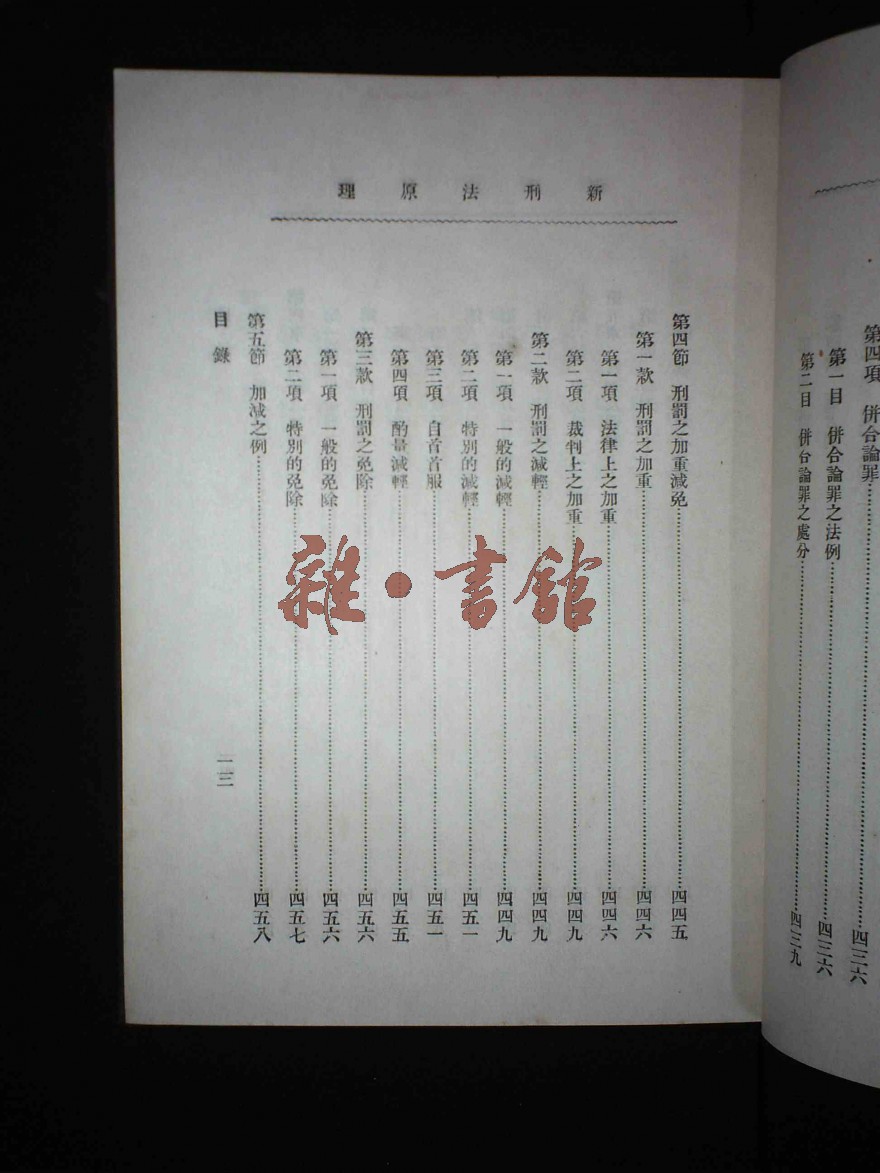 第四項　併合論罪……四三六
第一目　併合論罪之法例……四三六
第二目　併合論罪之處分……四三九
新刑法原理
第四節　刑罰之加重減免……四四五
第一款　刑罰之加重……四四六
第一項　法律上之加重……四四六
第二項　裁判上之加重……四四九
第二款　刑罰之減輕……四四九
第一項　一般的減輕……四四九
第二項　特別的減輕……四五一
第三項　自首首服……四五一
第四項　酌量減輕……四五五
第三款　刑罰之免除……四五六
第一項　一般的免除……四五六
第二項　特別的免除……四五七
第五節　加減之例……四五八
目錄
一三
雜·書館